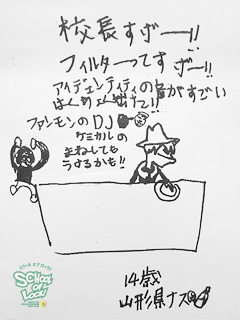 校長すげー!!
フィルターってすげー!!
アイデンティティの音がすごい
ファンモンのDJ
ケミカルの
まねしても
うけるかも!!
SCHOOL
OF
LOCK!
14歳
山形県ナス